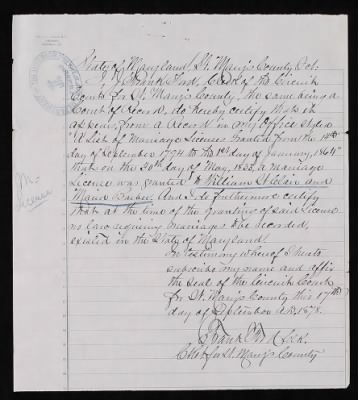 State of Maryland, St. Mary's County Sct.
I, J. Frank Ford, Clerk of the Circuit
Court for St. Mary's County, the same being a
Court of Record, do hereby certify that it
appears from a Record in my Office styled
"A List of Marriage Licenses granted from the
day of September 1794 to the 1st day of January, 1864"
that on the 30th day of May, 1835, a marriage
License was granted to William St. Clair and
And I do furthermore certify
that at the time of the granting of said License
no law requiring marriages to be recorded,
existed in the State of Maryland.
In testimony whereof I hereto
subscribe my name and affix
the seal of the Circuit Court
for St. Mary's County this 17th
day of December A.D. 1878.
J. Frank Ford Clk.
Ct. Ct. for St. Mary's County
M.
License